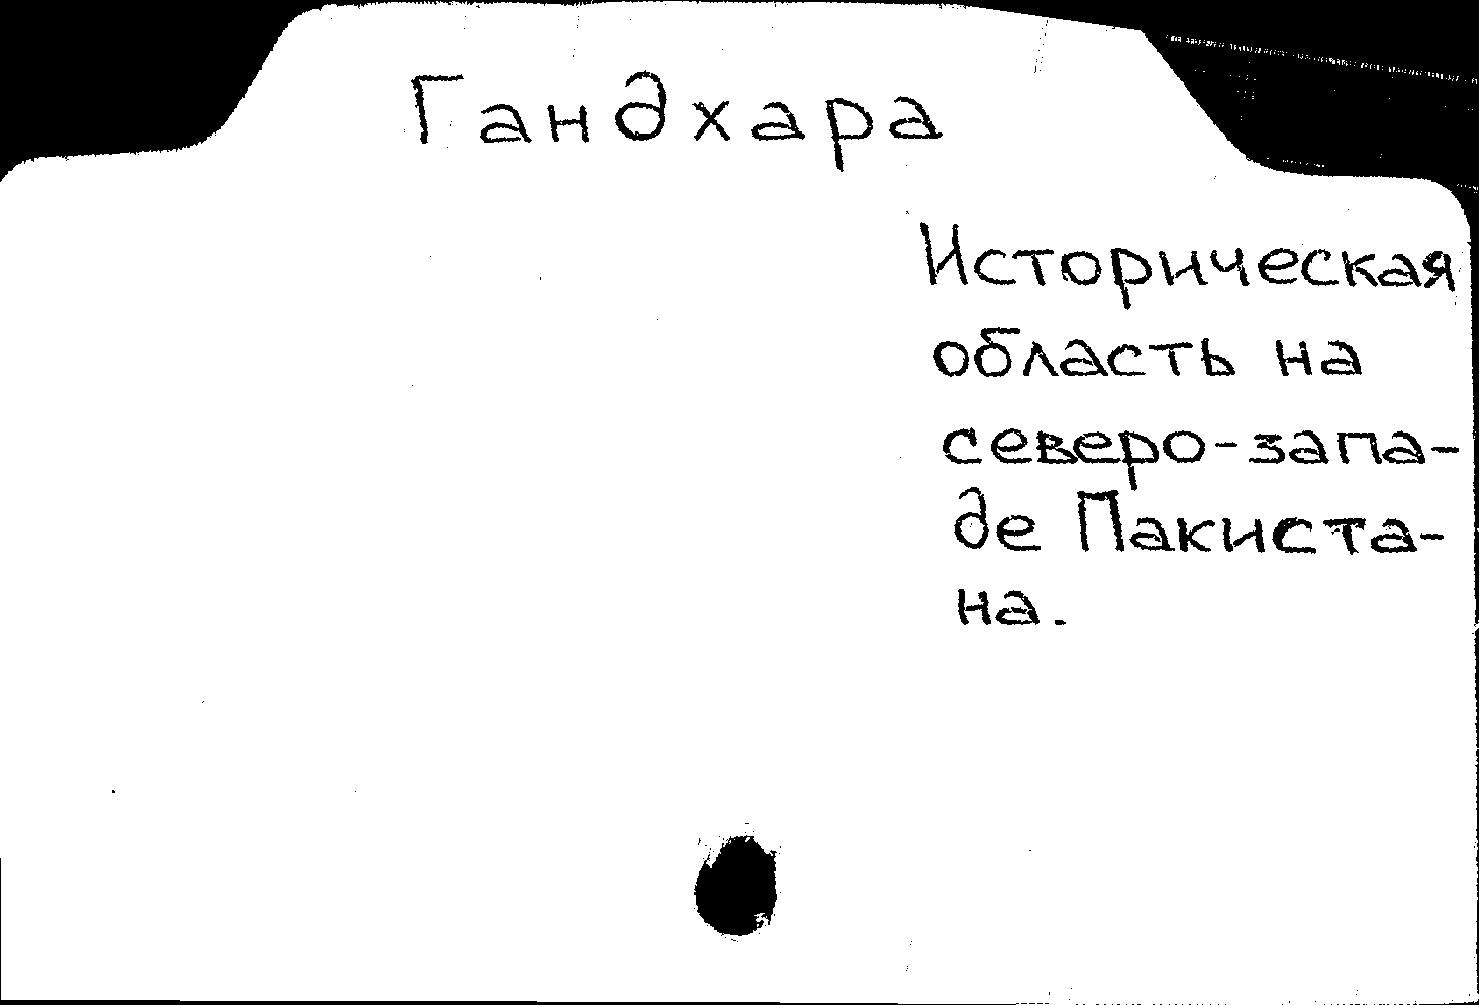 Гандхара
Историческая
область на
северо-запа-
де Пакиста-
на.